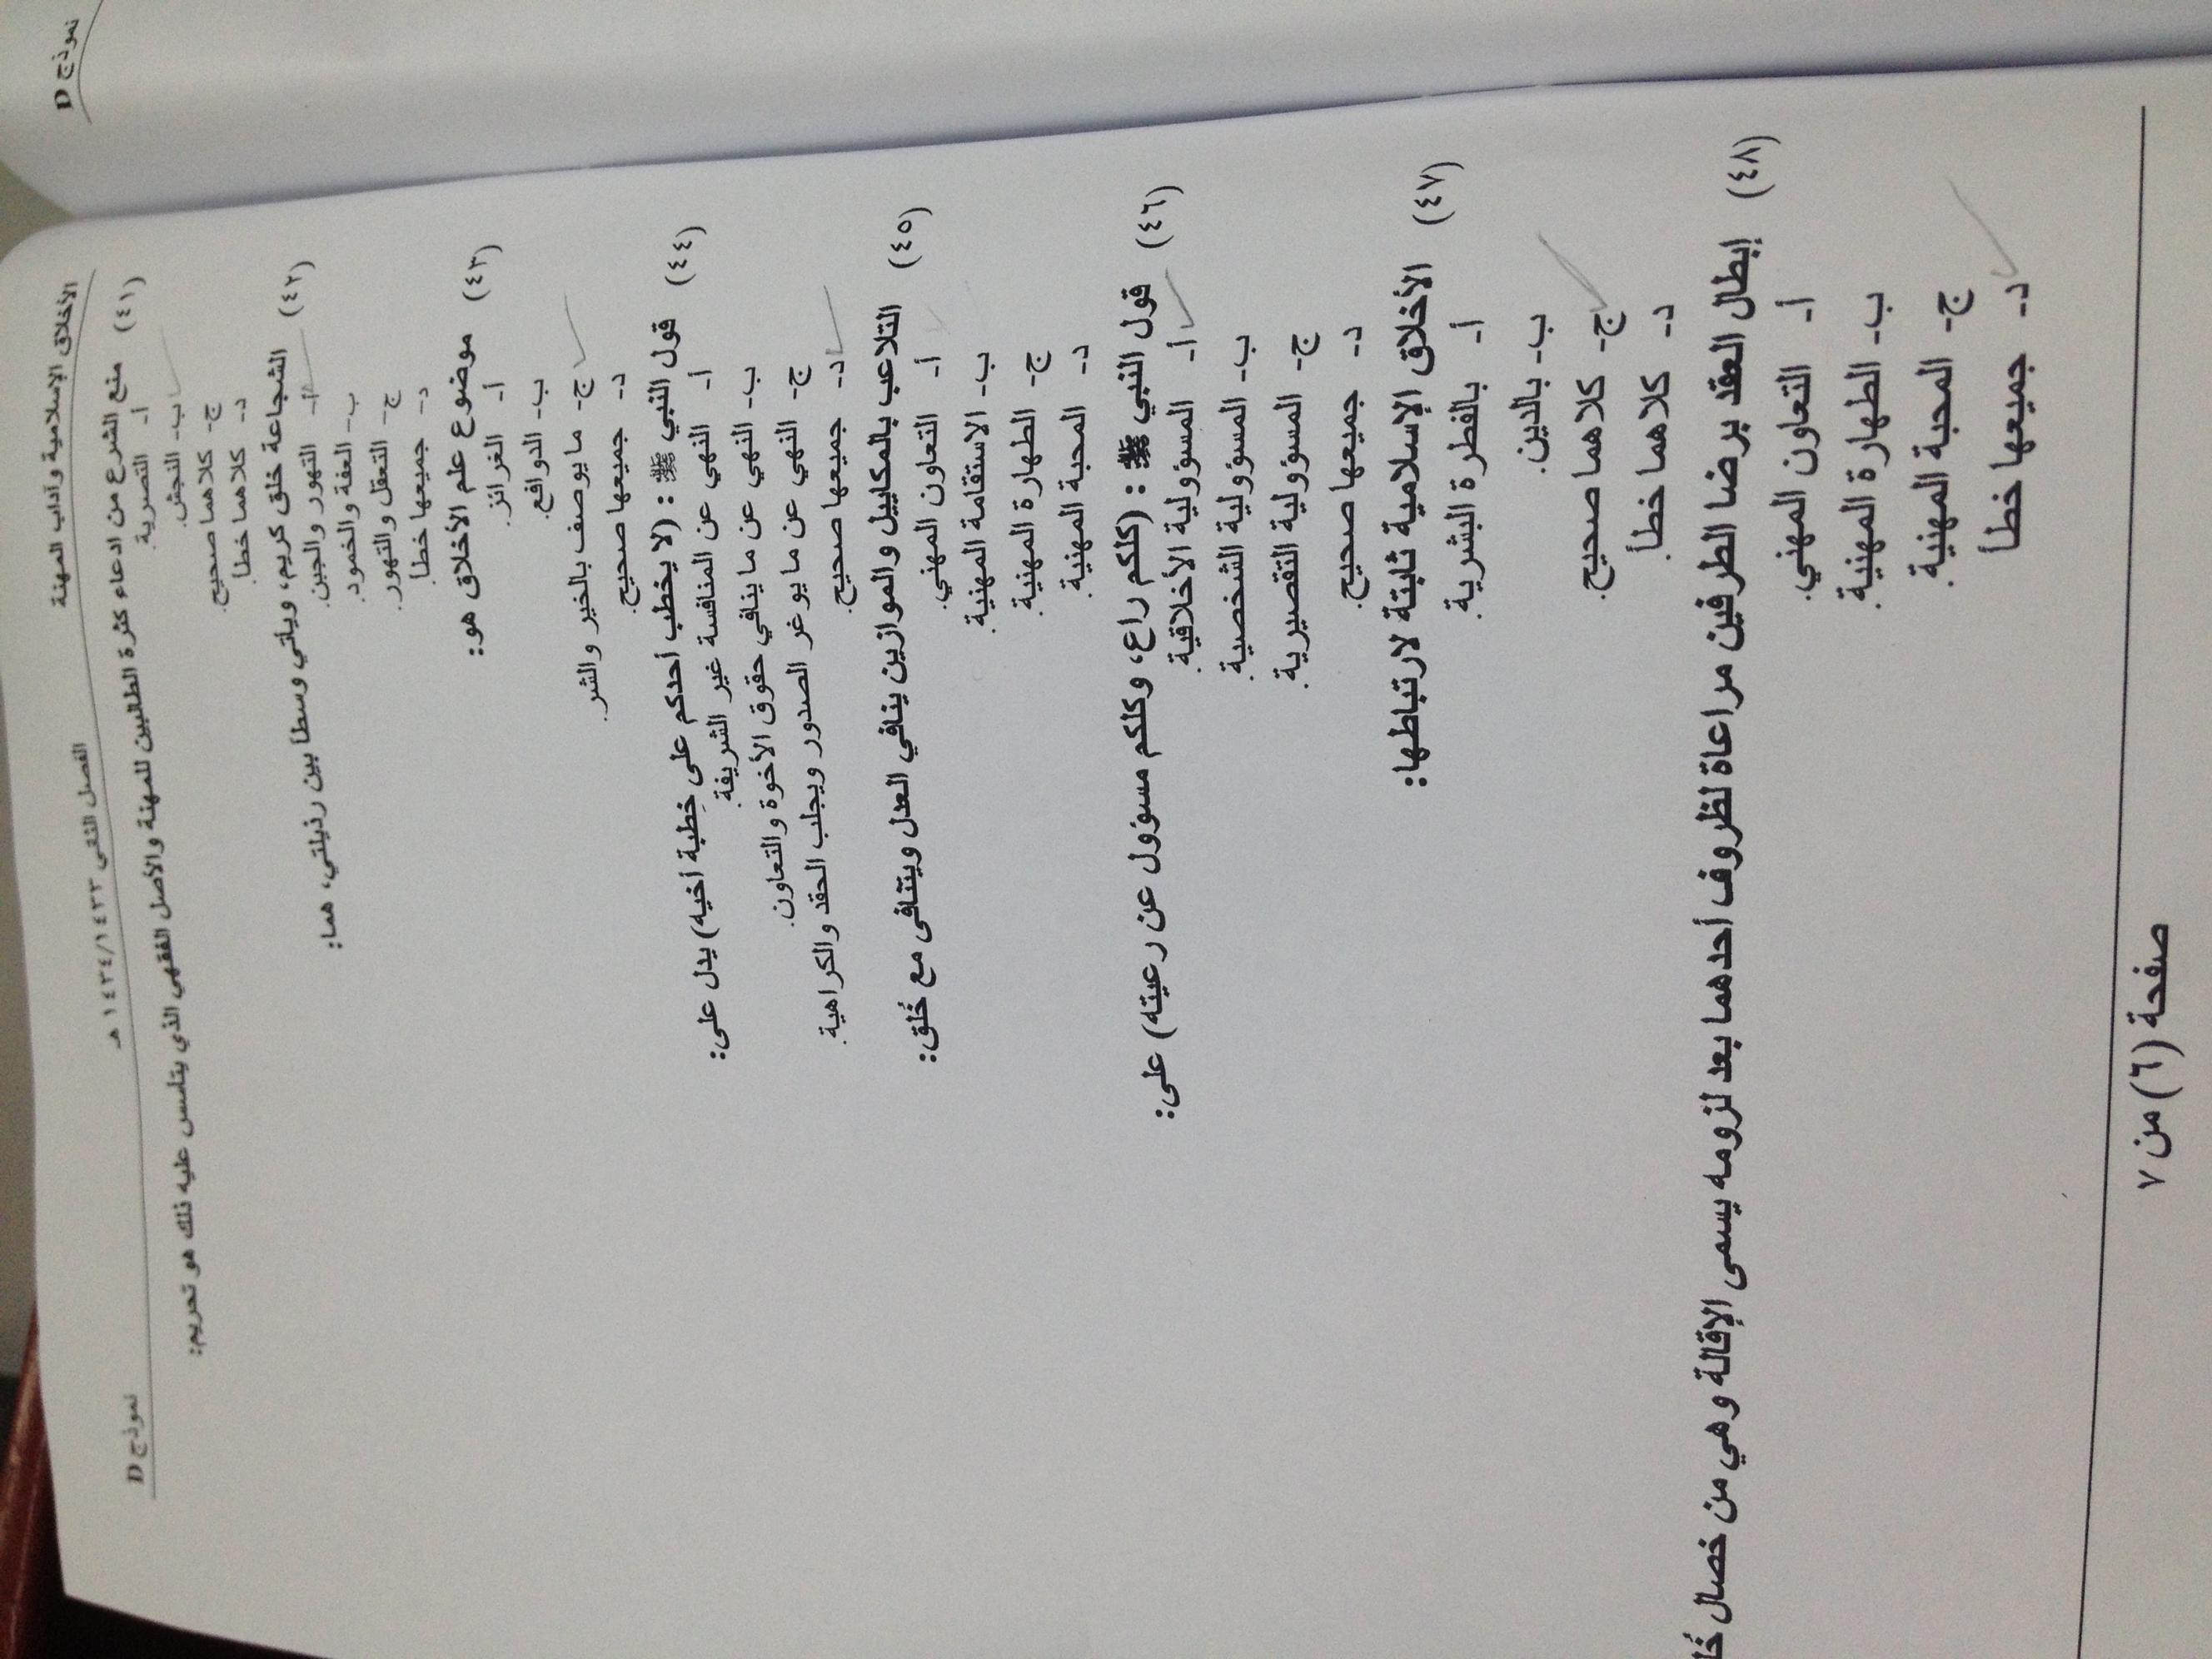 نموذج D
الأخلاق الإسلامية وآداب المهنة
الفصل الثاني ١٤٣٤/١٤٣٣ هـ
نموذج D
(٤١) منع الشرع من ادعاء كثرة الطالبين للمهنة والأصل الفقهي الذي يتأسس عليه ذلك هو تحريم:
أ- التصرية.
ب- النجش.
ج- كلاهما صحيح.
د- كلاهما خطأ.
(٤٢) الشجاعة خلق كريم، ويأتي وسطا بين رذيلتي، هما:
أ- التهور والجبن.
ب- العفة والخمود.
ج- التعقل والتهور.
د- جميعها خطأ.
(٤٣) موضوع علم الأخلاق هو:
أ- الغرائز.
ب- الدوافع.
ج- ما يوصف بالخير والشر.
د- جميعها صحيح.
(٤٤) قول النبي ﷺ : (لا يخطب أحدكم على خِطبة أخيه) يدل على:
أ- النهي عن المنافسة غير الشريفة.
ب- النهي عن ما ينافي حقوق الأخوة والتعاون.
ج- النهي عن ما يوغر الصدور ويجلب الحقد والكراهية.
د- جميعها صحيح.
(٤٥) التلاعب بالمكاييل والموازين ينافي العدل ويتنافى مع خُلق:
أ- التعاون المهني.
ب- الاستقامة المهنية.
ج- الطهارة المهنية.
د- المحبة المهنية.
(٤٦) قول النبي ﷺ : (كلكم راع، وكلكم مسؤول عن رعيته) على:
أ- المسؤولية الأخلاقية.
ب- المسؤولية الشخصية.
ج- المسؤولية التقصيرية.
د- جميعها صحيح.
(٤٧) الأخلاق الإسلامية ثابتة لارتباطها:
أ- بالفطرة البشرية.
ب- بالدين.
ج- كلاهما صحيح.
د- كلاهما خطأ.
(٤٨) إبطال العقد برضا الطرفين مراعاة لظروف أحدهما بعد لزومه يسمى الإقالة وهي من خصال
أ- التعاون المهني.
ب- الطهارة المهنية.
ج- المحبة المهنية.
د- جميعها خطأ
صفحة (٦) من ٧